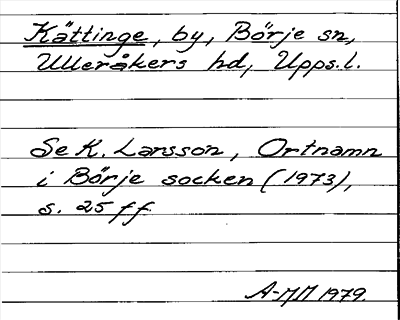 Kättinge, by, Börje sn,
Ulleråkers hd, Upps.l.
Se K. Larsson, Ortnamn
i Börje socken (1973),
s. 25 ff
A-MM 1979.